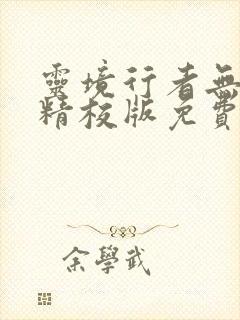 靈境行者無
精校版免費
余學武